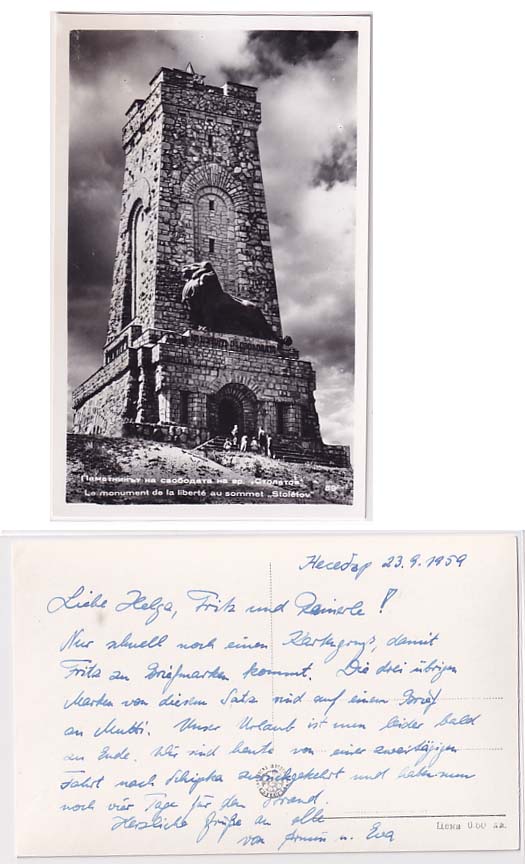 Паметникът на свободата на вр. „Столетов"
Le monument de la liberté au sommet „Stolétov"
Несебър 23.9.1959
Liebe Helga, Fritz und Rainerle!
Nur schnell noch einen Kartengruß, damit
Fritz zu Briefmarken kommt. Die drei übrigen
Marken von diesem Satz sind auf einem Brief
an Mutti. Unser Urlaub ist nun leider bald
zu Ende. Wir sind heute von einer zweitägigen
Fahrt nach Schipka zurückgekehrt und haben nun
noch vier Tage für den Strand.
Herzliche Grüße an alle
von Armin u. Eva
Цена 0.60 лв.